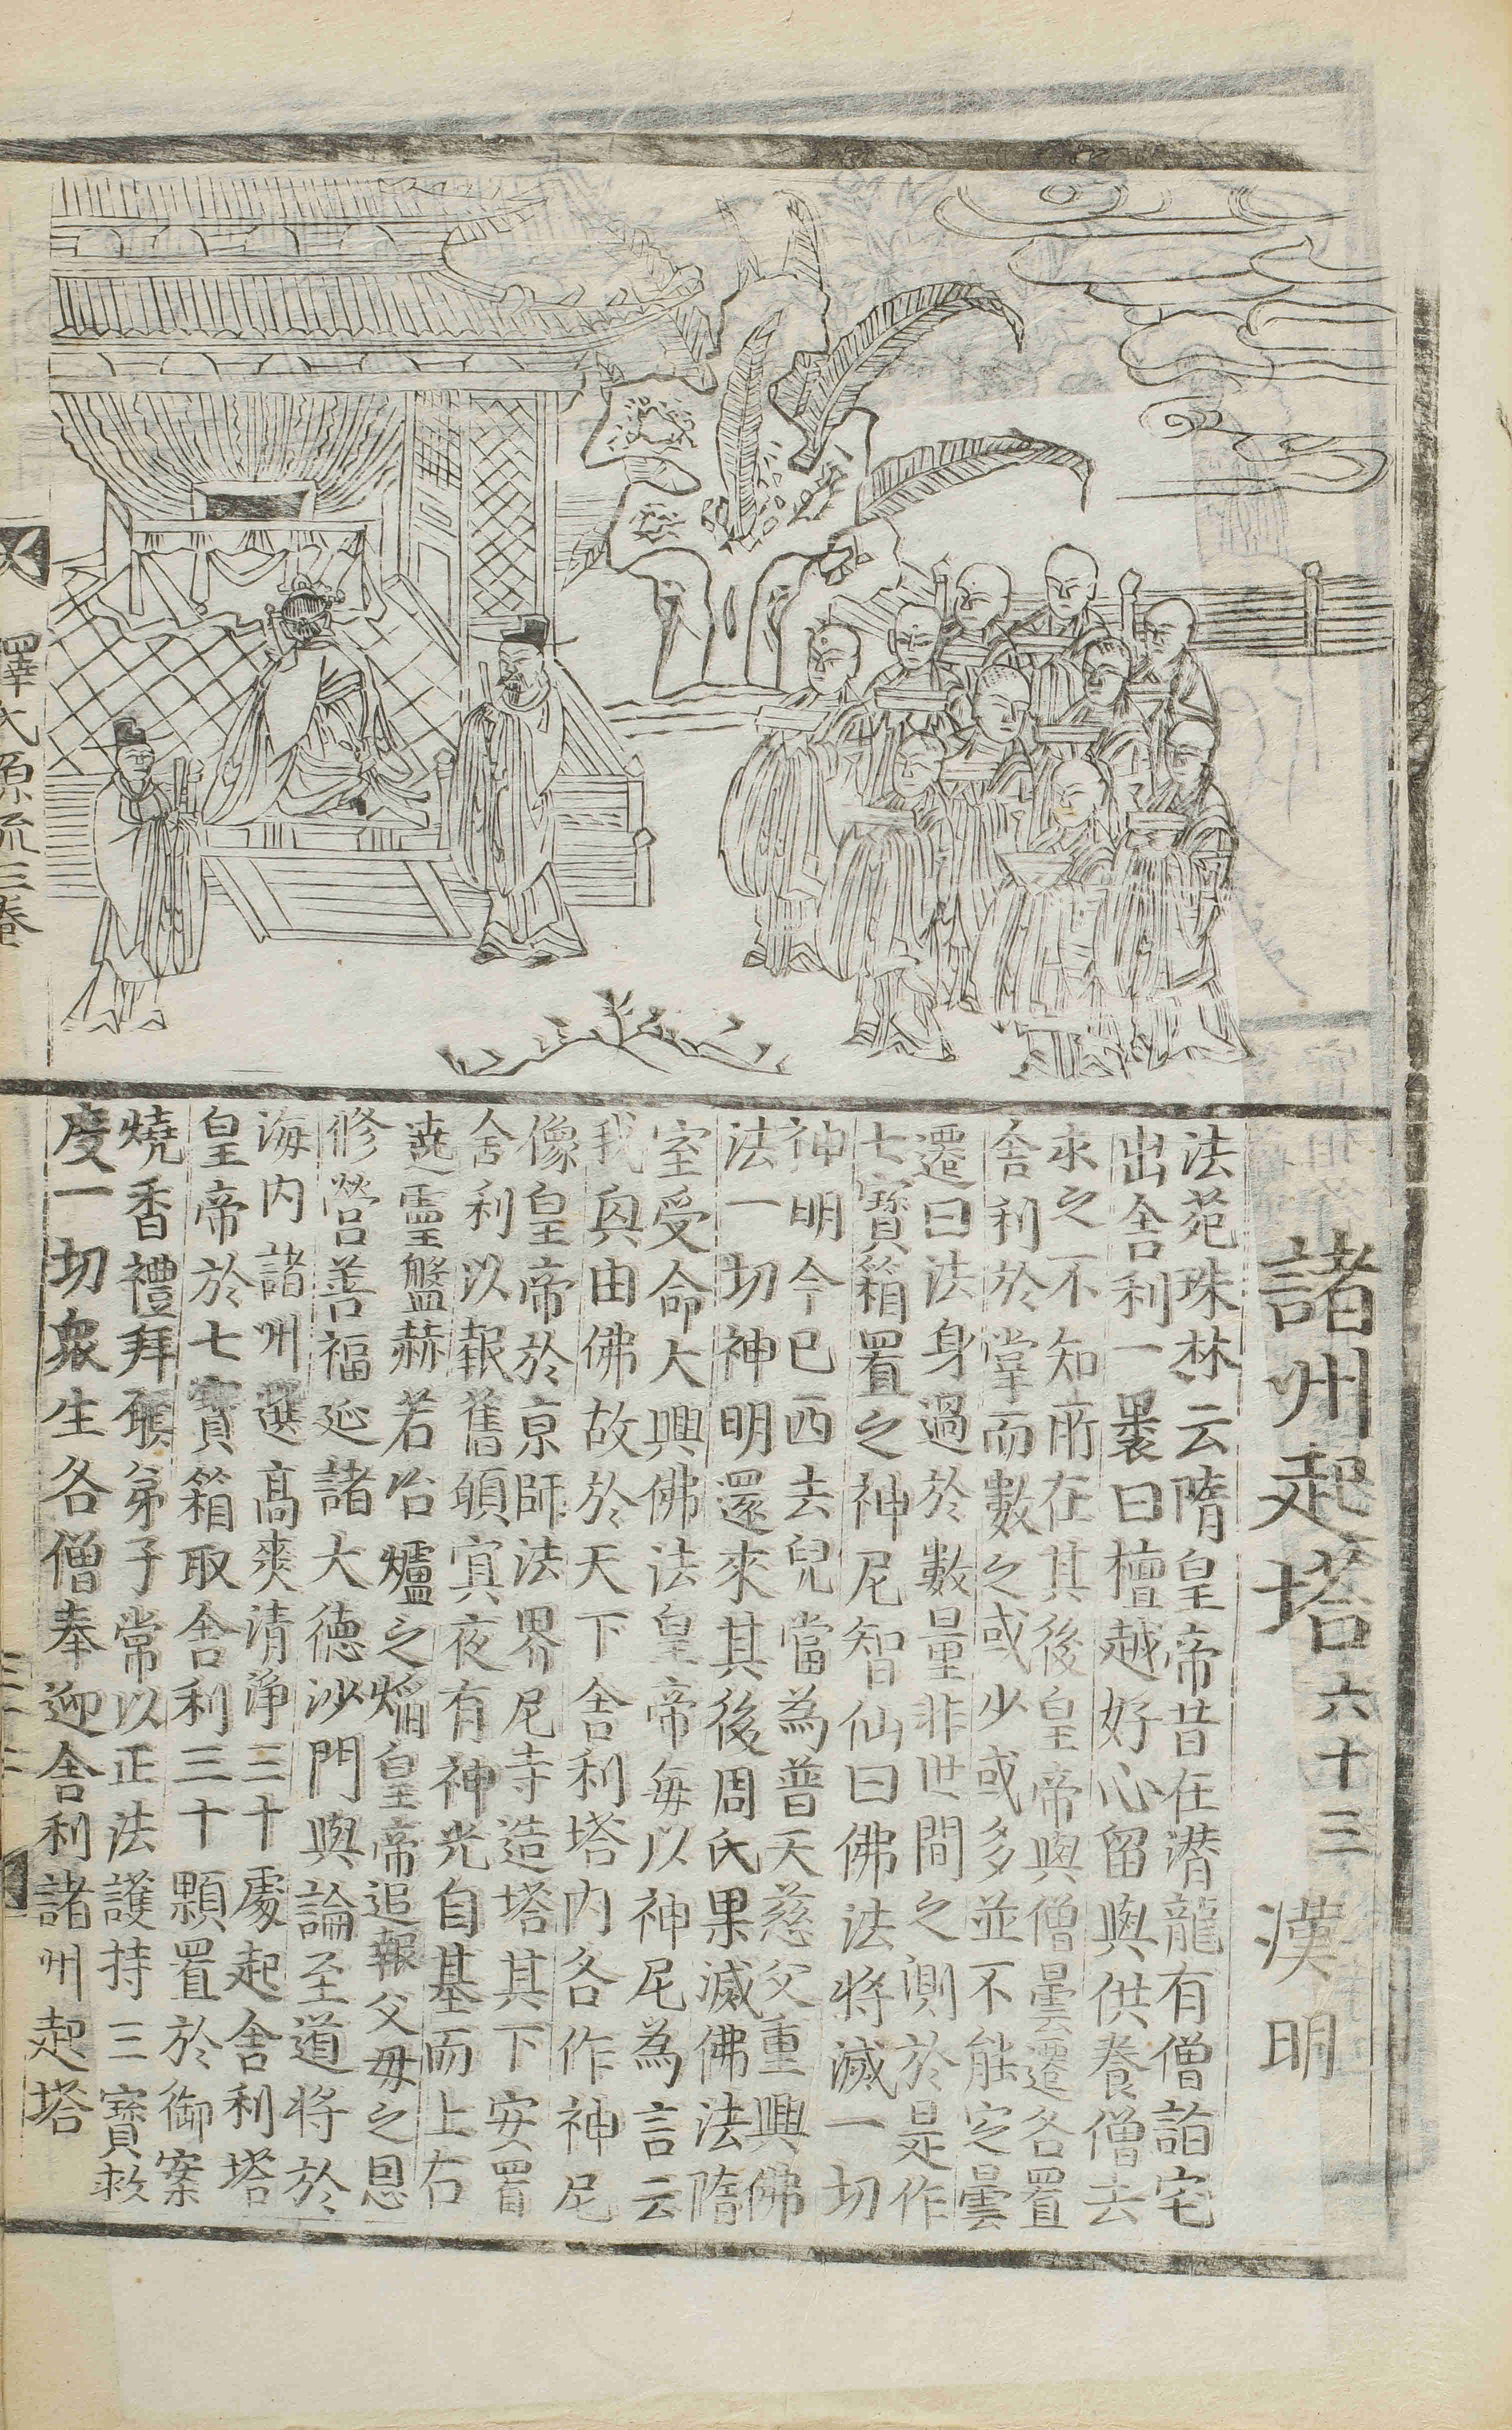 諸州起塔 六十三 漢明
法苑珠林云隋皇帝昔在潛龍有僧詣宅
出舍利一褁曰檀越好心留與供養僧去
求之不知所在其後皇帝與僧曇遷各置
舍利於掌而數之或少或多並不能定曇
遷曰法身過於數量非世間之測於是作
七寶箱置之神尼智仙曰佛法將滅一切
神明今已西去兒當為普天慈父重興佛
法一切神明還來其後周氏果滅佛法隋
室受命大興佛法皇帝每以神尼為言云
我興由佛故於天下舍利塔內各作神尼
像皇帝於京師法界尼寺造塔其下安置
舍利以報舊願冥夜有神光自基而上右
遶靈盤赫若冶爐之焰皇帝追報父母之恩
修營善福延諸大德沙門與論至道將於
海內諸州選高爽清淨三十處起舍利塔
皇帝於七寶箱取舍利三十顆置於御案
燒香禮拜願弟子常以正法護持三寶救
度一切眾生各僧奉迎舍利諸州起塔
釋氏源流三卷